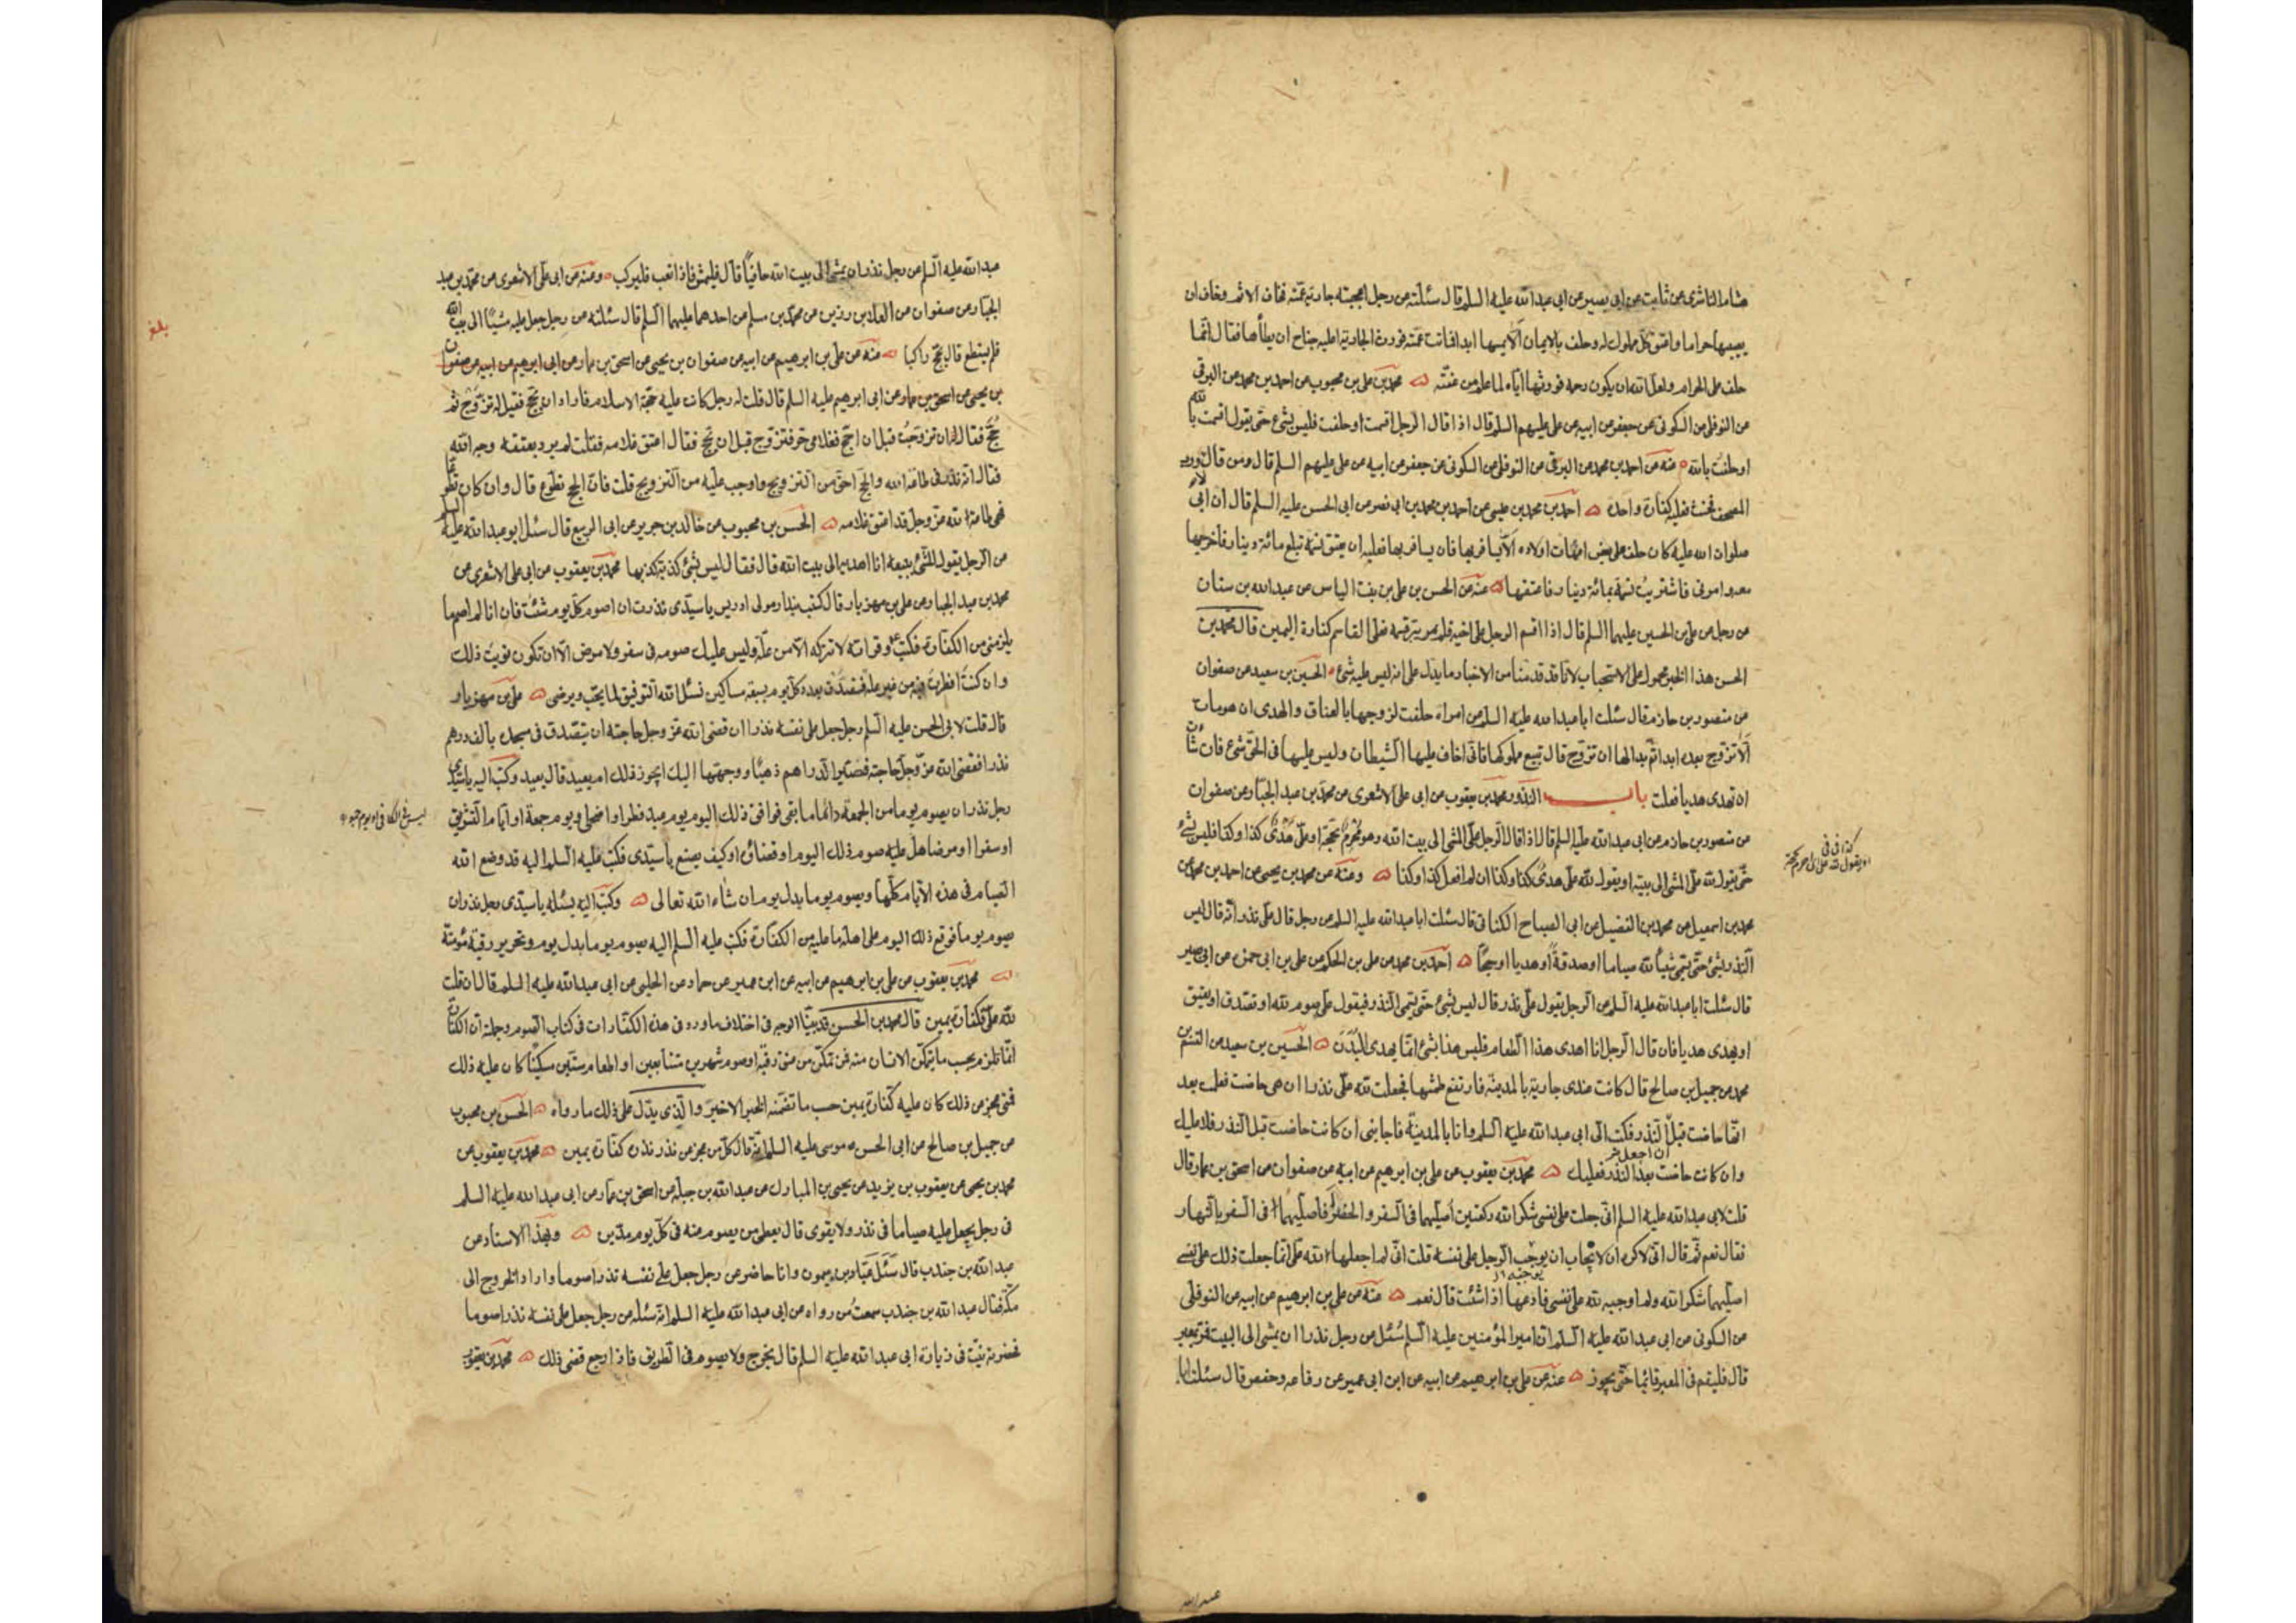 هشام الناشرى عن ثابت عن ابى بصير عن ابى عبد الله عليه السلم قال سئلته عن رجل اعجبته جارية عمته فخاف الاثم وخاف ان
يصيبها حراما واعتق كل مملوك له وحلف بالايمان الا يمسها ابدا فماتت عمته فورث الجارية اعليه جناح ان يطأها فقال انما
حلف على الحرام ولعل الله ان يكون رحمه فورثها اياه لما علم من عفته محمد بن على بن محبوب عن احمد بن محمد عن البرقى
عن النوفلى عن السكونى عن جعفر عن ابيه عن على عليهم السلم قال اذا قال الرجل اقسمت او حلفت فليس بشئ حتى يقول اقسمت بالله
او حلفت بالله عنه عن احمد بن محمد عن البرقى عن النوفلى عن السكونى عن جعفر عن ابيه عن على عليهم السلم قال ومن قال لا ورب
المصحف فحنث فعليه كفارة واحدة احمد بن محمد بن عيسى عن احمد بن محمد بن ابى نصر عن ابى الحسن عليه السلم قال ان ابى
صلوات الله عليه كان حلف على بعض امهات اولاده الا يسافر بها فان سافر بها فعليه ان يعتق نسمة تبلغ مائة دينار فاخرجها
معه وامرنى فاشتريت نسمة بمائة دينار فاعتقها عنه عن الحسن بن على بن بنت الياس عن عبد الله بن سنان
عن رجل عن على بن الحسين عليهما السلم قال اذا اقسم الرجل على اخيه فلم يبر قسمه فعلى القاسم كفارة اليمين قال محمد بن
الحسن هذا الخبر محمول على الاستحباب لانا قد قدمنا من الاخبار ما يدل على انه ليس عليه شئ الحسين بن سعيد عن صفوان
عن منصور بن حازم قال سئلت ابا عبد الله عليه السلم عن امراة حلفت لزوجها بالعتاق والهدى ان هو مات
الا تزوج بعده ابدا ثم بدا لها ان تزوج قال تبيع مملوكها فانى اخاف عليها الشيطان وليس عليها فى الحق شئ فان شائت
ان تهدى هديا فعلت باب النذور محمد بن يعقوب عن ابى على الاشعرى عن محمد بن عبد الجبار عن صفوان
عن منصور بن حازم عن ابى عبد الله عليه السلم قال اذا قال الرجل على المشى الى بيت الله وهو محرم بحجة او على هدى كذا وكذا فليس بشئ
حتى يقول لله على المشى الى بيته او يقول لله على هدى كذا وكذا ان لم افعل كذا وكذا وعنه عن محمد بن يحيى عن احمد بن محمد عن
محمد بن اسمعيل عن محمد بن الفضيل عن ابى الصباح الكنانى قال سئلت ابا عبد الله عليه السلم عن رجل قال على نذر انه قال ليس
النذر بشئ حتى يسمى شيئا لله صياما او صدقة او هديا او حجا احمد بن محمد عن على بن الحكم عن على بن ابى حمزة عن ابى بصير
قال سئلت ابا عبد الله عليه السلم عن الرجل يقول على نذر قال ليس بشئ حتى يسمى النذر فيقول على صوم لله او تصدق او يعتق
او يهدى هديا فان قال الرجل انا اهدى هذا الطعام فليس هذا بشئ انما يهدى البدن الحسين بن سعيد عن القسم بن
محمد عن جميل بن صالح قال كانت عندى جارية بالمدينة فارتفع طمثها فجعلت لله على نذرا ان هى حاضت فعلمت بعد
انها حاضت قبل النذر فكتبت الى ابى عبد الله عليه السلم وانا بالمدينة فاجابنى ان كانت حاضت قبل النذر فلا عليك
وان كانت حاضت بعد النذر فعليك محمد بن يعقوب عن على بن ابرهيم عن ابيه عن صفوان عن اسحق بن عمار قال
قلت لابى عبد الله عليه السلم انى جعلت على نفسى شكرا لله ركعتين اصليهما فى السفر والحضر افاصليهما فى السفر بالنهار
فقال نعم ثم قال انى لاكره الايجاب ان يوجب الرجل على نفسه قلت انى لم اجعلها لله على انما جعلت ذلك على نفسى
اصليهما شكرا لله ولم اوجبه لله على نفسى فادعها اذا شئت قال نعم عنه عن على بن ابرهيم عن ابيه عن النوفلى
عن السكونى عن ابى عبد الله عليه السلم ان امير المؤمنين عليه السلم سئل عن رجل نذر ان يمشى الى البيت فمر بمعبر
قال فليقم فى المعبر قائما حتى يجوز عنه عن على بن ابرهيم عن ابيه عن ابن ابى عمير عن رفاعه وحفص قال سئلت ابا
عبد الله
عبد الله عليه السلم عن رجل نذر ان يمشى الى بيت الله حافيا قال فليمش فاذا تعب فليركب وعنه عن ابى على الاشعرى عن محمد بن عبد
الجبار عن صفوان عن العلا بن رزين عن محمد بن مسلم عن احدهما عليهما السلم قال سئلته عن رجل جعل عليه مشيا الى بيت الله
فلم يستطع قال يحج راكبا عنه عن على بن ابرهيم عن ابيه عن صفوان بن يحيى عن اسحق بن عمار عن ابى ابرهيم عن ابيه عن صفوان
بن يحيى عن اسحق بن عمار عن ابى ابرهيم عليه السلم قال قلت له رجل كانت عليه حجة الاسلام فاراد ان يحج فقيل له تزوج ثم
حج فقال ان تزوجت قبل ان احج فغلامى حر فتزوج قبل ان يحج فقال اعتق غلامه فقلت لم يرد بعتقه وجه الله
فقال انه نذر فى طاعة الله والحج احق من التزويج واوجب عليه من التزويج قلت فان الحج تطوع قال وان كان تطوعا
فهى طاعة الله عز وجل قد اعتق غلامه الحسن بن محبوب عن خالد بن جرير عن ابى الربيع قال سئل ابو عبد الله عليه السلم
عن الرجل يقول للشئ يبيعه انا اهديه الى بيت الله قال فقال ليس بشئ كذبة كذبها محمد بن يعقوب عن ابى على الاشعرى عن
محمد بن عبد الجبار عن على بن مهزيار قال كتب بندار مولى ادريس يا سيدى نذرت ان اصوم كل يوم سبت فان انا لم اصم ما
يلزمنى من الكفارة فكتب وقرأته لا تتركه الا من علة وليس عليك صومه فى سفر ولا مرض الا ان تكون نويت ذلك
وان كنت افطرت فيه من غير علة فتصدق بعدد كل يوم بسبعة مساكين نسئل الله التوفيق لما يحب ويرضى على بن مهزيار
قال قلت لابى الحسن عليه السلم رجل جعل على نفسه نذرا ان قضى الله عز وجل حاجته ان يتصدق فى مسجده بالف درهم
نذرا فقضى الله عز وجل حاجته فصير الدراهم ذهبا ووجهتها اليك ايجوز ذلك ام يعيد قال يعيد وكتب اليه يا سيدى
رجل نذر ان يصوم يوما من الجمعة دائما ما بقى فوافق ذلك اليوم يوم عيد فطر او اضحى او يوم جمعة او ايام التشريق
او سفرا او مرضا هل عليه صوم ذلك اليوم او قضائه او كيف يصنع يا سيدى فكتب عليه السلم اليه قد وضع الله
الصيام فى هذه الايام كلها ويصوم يوما بدل يوم ان شاء الله تعالى وكتب اليه يسئله يا سيدى رجل نذر ان
يصوم يوما فوقع ذلك اليوم على اهله ما عليه من الكفارة فكتب عليه السلم اليه يصوم يوما بدل يوم وتحرير رقبة مؤمنة
محمد بن يعقوب عن على بن ابرهيم عن ابيه عن ابن عمير عن حماد عن الحلبى عن ابى عبد الله عليه السلم قال ان قلت
لله على فكفارة يمين قال محمد بن الحسن قد بينا الوجه فى اختلاف ما ورد فى هذه الكفارات فى كتاب الصوم وجملته ان الكفارة
انما تلزم بحسب ما يتمكن الانسان منه فمن تمكن من عتق رقبة او صوم شهرين متتابعين او اطعام ستين مسكينا كان عليه ذلك
فمتى عجز عن ذلك كان عليه كفارة يمين حسب ما تضمنه الخبر الاخير والذى يدل على ذلك ما رواه الحسن بن محبوب
عن جميل بن صالح عن ابى الحسن موسى عليه السلم انه قال كل من عجز عن نذر نذره كفارة يمين محمد بن يعقوب عن
محمد بن يحيى عن يعقوب بن يزيد عن يحيى بن المبارك عن عبد الله بن جبلة عن اسحق بن عمار عن ابى عبد الله عليه السلم
فى رجل يجعل عليه صياما فى نذر ولا يقوى قال يعطى من يصوم عنه فى كل يوم مدين وبهذا الاسناد عن
عبد الله بن جندب قال سئل عباد بن ميمون وانا حاضر عن رجل جعل على نفسه نذرا صوما واراد الخروج الى
مكة فقال عبد الله بن جندب سمعت من رواه عن ابى عبد الله عليه السلم انه سئله عن رجل جعل على نفسه نذرا صوما
فحضرته نية فى زيارة ابى عبد الله عليه السلم قال يخرج ولا يصوم فى الطريق فاذا رجع قضى ذلك محمد بن يعقوب
بلغ